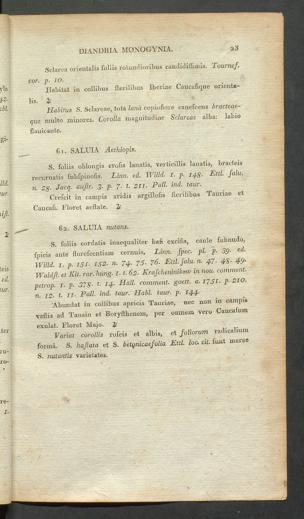 DIANDRIA MONOGYNIA. 23
Sclarea orientalis foliis rotundioribus candidissimis. Tournef.
cor. p. 10.
Habitat in collibus sterilibus Iberiae Caucasique orienta-
lis. ♃
Habitus S. Sclareae, tota lana copiosiore canescens bracteas-
que multo minores. Corolla magnitudine Sclareae alba: labio
flauicante.
61. SALUIA Aethiopis.
S. foliis oblongis erosis lanatis, verticillis lanatis, bracteis
recuruatis subspinosis. Linn. ed. Willd. 1. p. 148. Ettl. salu.
n. 28. Jacq. austr. 3. p. 7. t. 211. Pall. ind. taur.
Crescit in campis aridis argillosis sterilibus Tauriae et
Caucasi. Floret aestate. ♃
62. SALUIA nutans.
S. foliis cordatis inaequaliter basi excisis, caule subnudo,
spicis ante florescentiam cernuis. Linn. spec. pl. p. 39. ed.
Willd. 1. p. 151. 152. n. 74. 75. 76. Ettl. salu. n. 47. 48. 49.
Waldst. et Kit. rar. hung. 1. t. 62. Krascheninikow in nov. comment.
petrop. 1. p. 378. t. 14. Hall. comment. goett. a. 1751. p. 210.
n. 12. t. 11. Pall. ind. taur. Habl. taur. p. 144.
Abundat in collibus apricis Tauriae, nec non in campis
vastis ad Tanain et Borysthenem, per omnem vero Caucasum
exulat. Floret Majo. ♃
Variat corollis roseis et albis, et foliorum radicalium
forma. S. hastata et S. betonicaefolia Ettl. loc. cit. sunt merae
S. nutantis varietates.